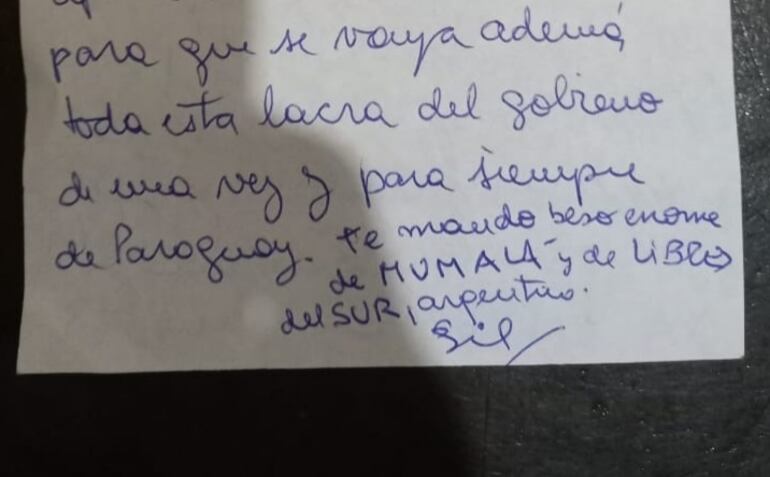 para que se vaya ademá
toda esta lacra del gobierno
de una vez y para siempre
de Paraguay. te mando beso enorme
de MUMALÁ y de LIBRES
del SUR, argentino.
Sil